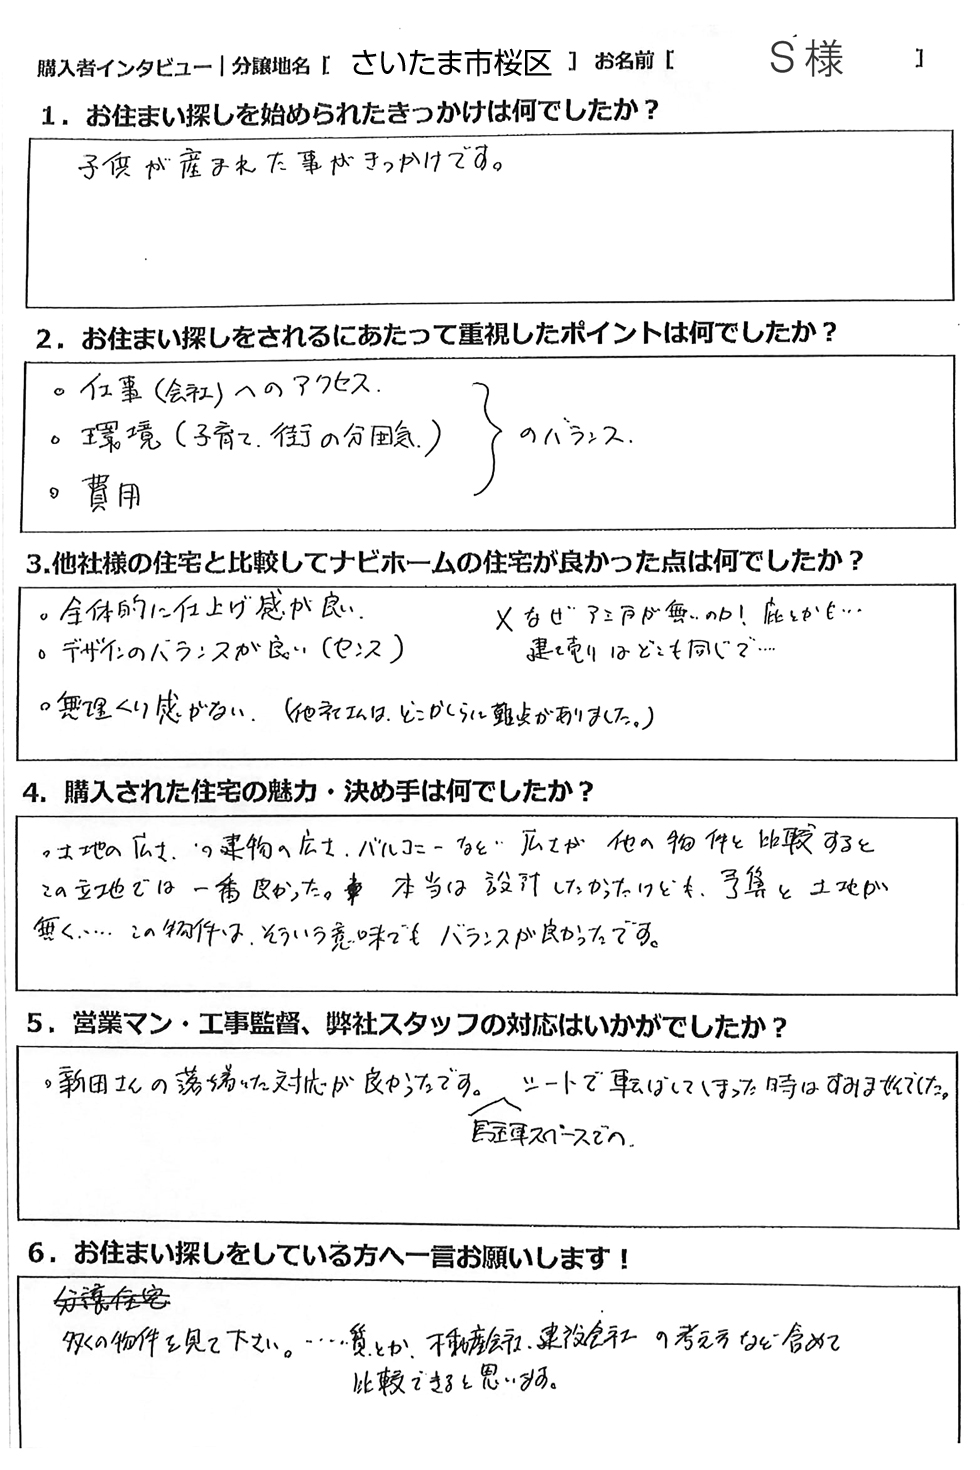 購入者インタビュー｜分譲地名［ さいたま市桜区 ］ お名前［ S 様 ］
1．お住まい探しを始められたきっかけは何でしたか？
子供が産まれた事がきっかけです。
2．お住まい探しをされるにあたって重視したポイントは何でしたか？
。仕事(会社)へのアクセス.
。環境(子育て.街の分囲気.) のバランス.
。費用
3.他社様の住宅と比較してナビホームの住宅が良かった点は何でしたか？
。全体的に仕上げ感が良い. ✕なぜ が無いのか! 庇とかも…
。デザインのバランスが良い(センス) 建て売りはどこも同じで…
。無理くり感がない. (他社さんは、どこかしらに難点がありました。)
4．購入された住宅の魅力・決め手は何でしたか？
。土地の広さ、 建物の広さ.バルコニーなど 広さが 他の物件と比較すると
この立地では 一番良かった。 本当は設計したかったけども、予算と土地が
無く…… この物件は、そういう意味でも バランスが良かったです。
5．営業マン・工事監督、弊社スタッフの対応はいかがでしたか？
。新田さんの落ち着いた対応が良かったです。 シートで転ばしてしまった時はすみませんでした。
駐車スペースでの.
6．お住まい探しをしている方へ一言お願いします！
分譲住宅
多くの物件を見て下さい。……質とか、不動産会社、建設会社 の考え方など含めて
比較できると思います。